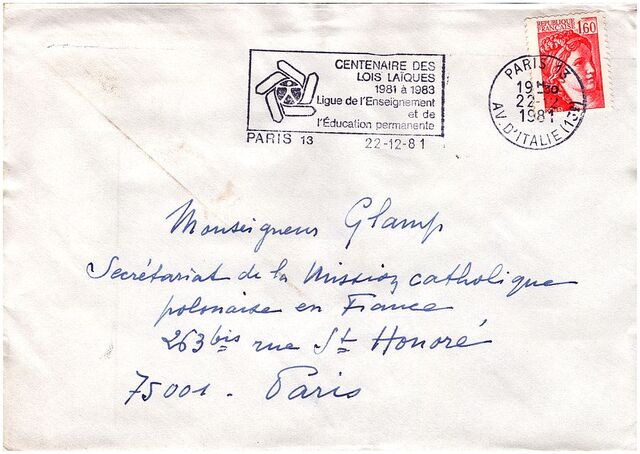 REPUBLIQUE
FRANCAISE
1.60
CENTENAIRE DES
LOIS LAÏQUES
1981 à 1983
Ligue de l'Enseignement
et de
l'Éducation permanente
PARIS 13
22-12-81
PARIS 13
19H
22-12
1981
AV. D'ITALIE (13e)
Monseigneur Glamp
Secrétariat de la Mission catholique
polonaise en France
263 bis rue St Honoré
75001 - Paris